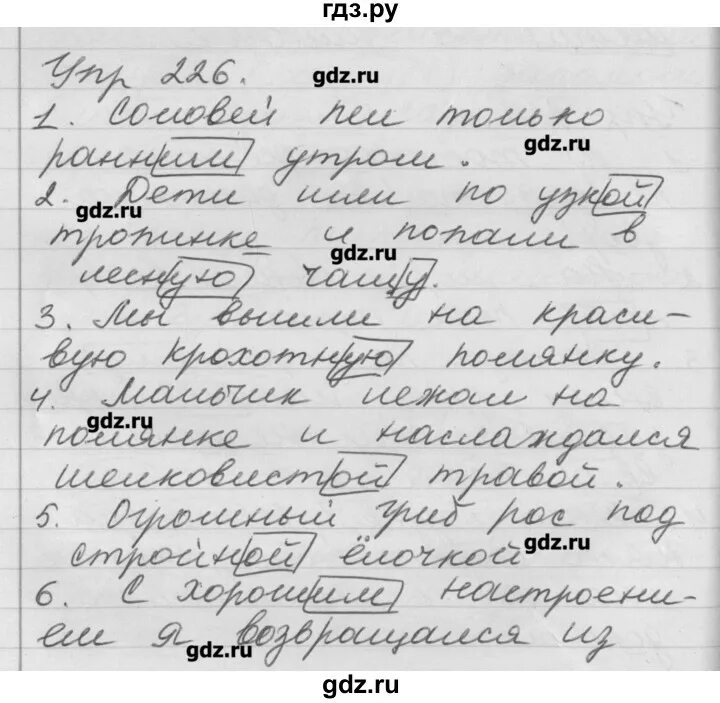 гдз.ру
Упр 226.
gdz.ru
1. Соловей пел только
gdz.ru
ранним утром.
2. Дети шли по узкой
gdz.ru
тропинке и попали в
gdz.ru
лесную чащу.
3. Мы вышли на краси-
вую крохотную полянку.
4. Мальчик лежал на
gdz.ru
полянке и наслаждался
шелковистой травой.
5. Огромный гриб рос под
стройной ёлочкой
gdz.ru
6. С хорошим настроени-
ем я возвращался из
gdz.ru
gdz.ru